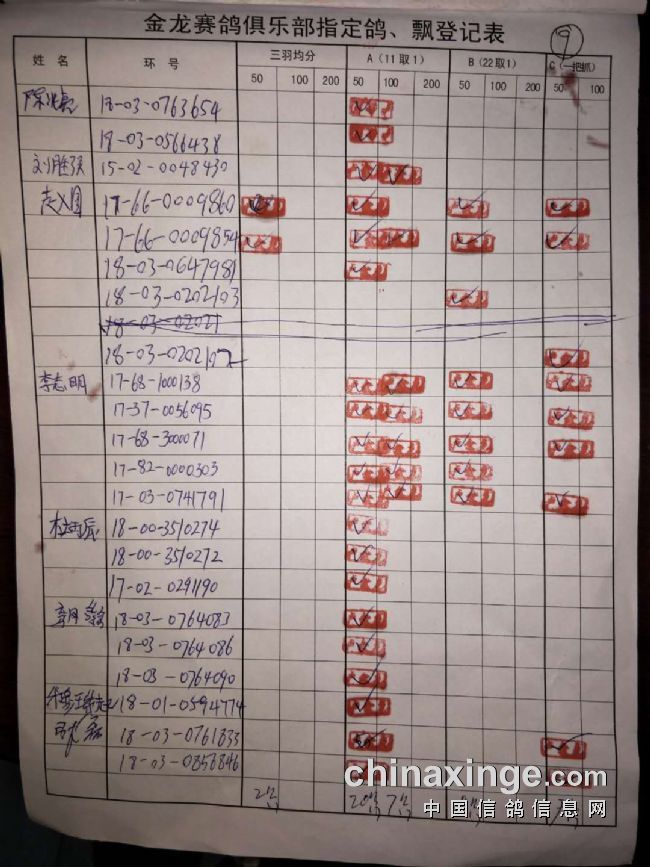 金龙赛鸽俱乐部指定鸽、飘登记表
9
姓名 环号 三羽均分 A(11取1) B(22取1) C(一把抓)
50 100 200 50 100 200 50 100 200 50 100
18-03-0763654
18-03-0566438
刘胜强 15-02-0048430
17-66-0009860
17-66-0009854
18-03-0647981
18-03-0202103
18-03-02021
18-03-0202102
李志明 17-68-1000138
17-37-0056095
17-68-3000071
17-82-0000303
17-03-0741791
18-00-3510274
18-00-3510272
17-02-0291190
18-03-0764083
18-03-0764086
18-03-0764090
18-01-0594774
18-03-0761833
18-03-0856846
chinaxinge.com
中国信鸽信息网